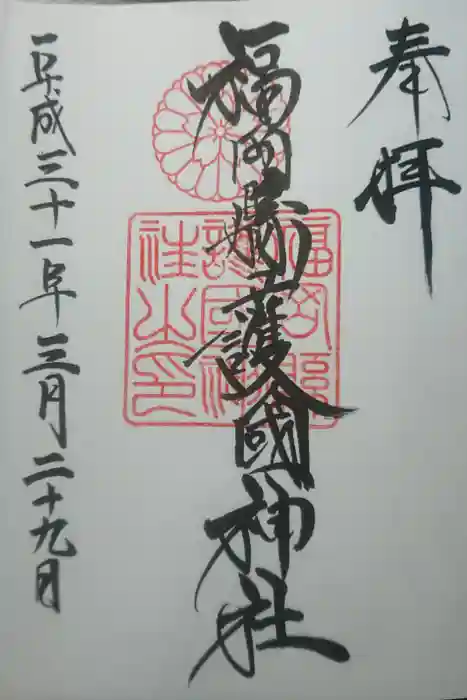 奉拝
福岡縣護國神社
平成三十一年三月二十九日
福岡縣
護國神
社之印